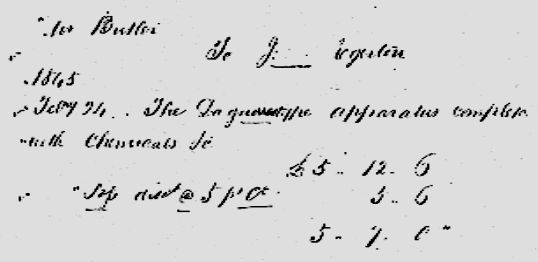 Mr Butler
To J. Egerton
1845
Feby 24. The Daguerreotype apparatus complete
with Chemicals &c
£5.. 12. 6
disct @ 5 pr Ct 5.. 6
5.. 7. 0"